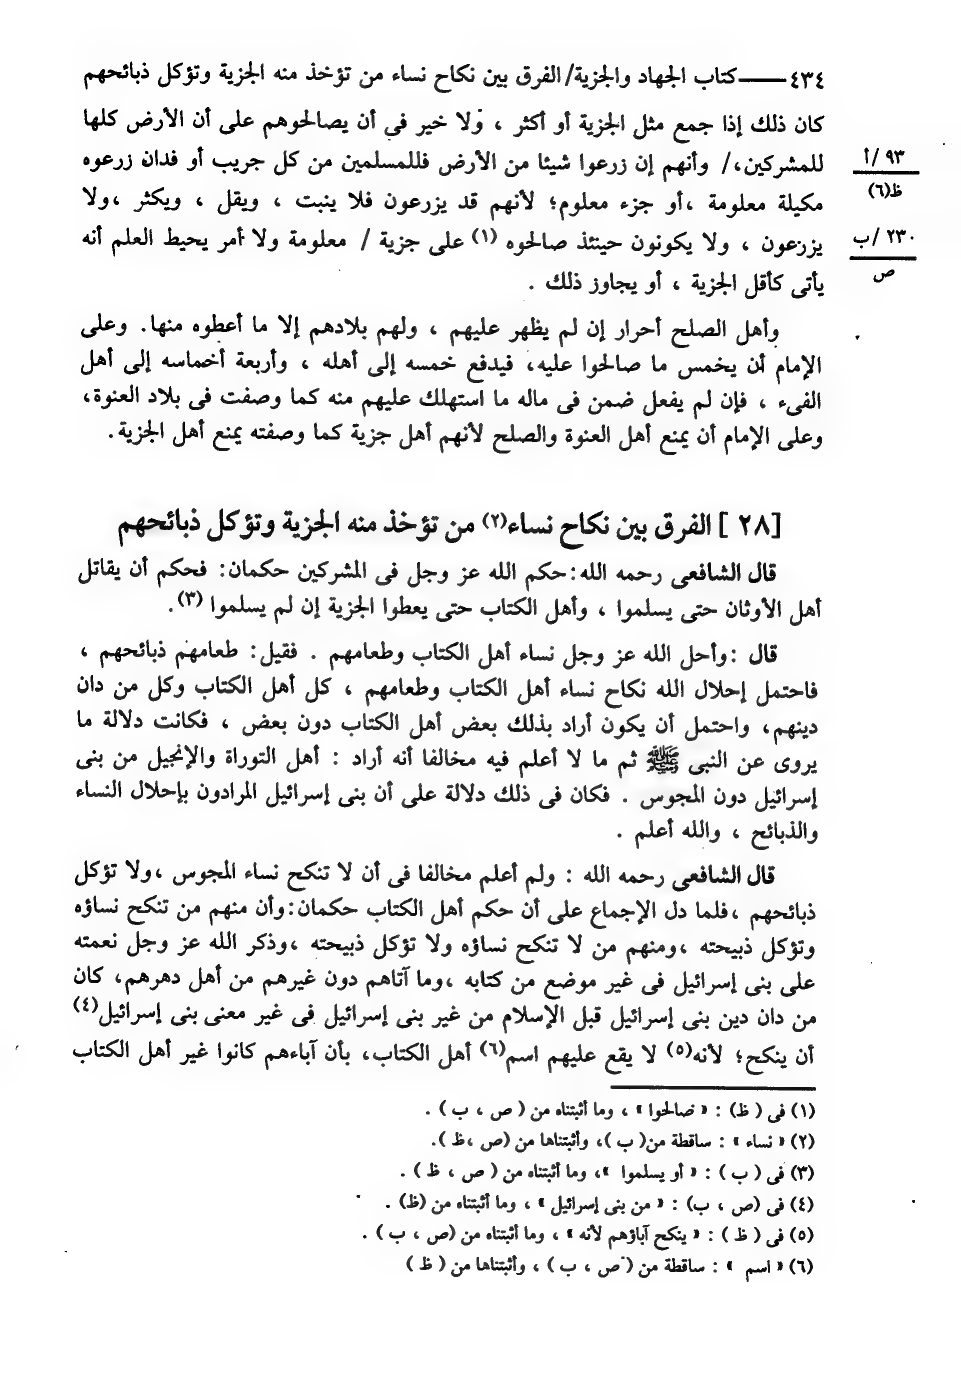 ٤٣٤ ـــــ كتاب الجهاد والجزية/ الفرق بين نكاح نساء من تؤخذ منه الجزية وتؤكل ذبائحهم
كان ذلك إذا جمع مثل الجزية أو أكثر ، ولا خير فى أن يصالحوهم على أن الأرض كلها
للمشركين،/ وأنهم إن زرعوا شيئا من الأرض فللمسلمين من كل جريب أو فدان زرعوه
٩٣ /أ
ظ(٦)
مكيلة معلومة ،أو جزء معلوم؛ لأنهم قد يزرعون فلا ينبت ، ويقل ، ويكثر ،ولا
يزرعون ، ولا يكونون حينئذ صالحوه (١) على جزية / معلومة ولا أمر يحيط العلم أنه
٢٣٠ /ب
ص
يأتى كأقل الجزية ، أو يجاوز ذلك .
وأهل الصلح أحرار إن لم يظهر عليهم ، ولهم بلادهم إلا ما أعطوه منها. وعلى
الإمام أن يخمس ما صالحوا عليه، فيدفع خمسه إلى أهله ، وأربعة أخماسه إلى أهل
الفىء ، فإن لم يفعل ضمن فى ماله ما استهلك عليهم منه كما وصفت فى بلاد العنوة،
وعلى الإمام أن يمنع أهل العنوة والصلح لأنهم أهل جزية كما وصفته يمنع أهل الجزية.
[٢٨ ] الفرق بين نكاح نساء(٢) من تؤخذ منه الجزية وتؤكل ذبائحهم
قال الشافعى رحمه الله:حكم الله عز وجل فى المشركين حكمان: فحكم أن يقاتل
أهل الأوثان حتى يسلموا ، وأهل الكتاب حتى يعطوا الجزية إن لم يسلموا (٣).
قال :وأحل الله عز وجل نساء أهل الكتاب وطعامهم . فقيل: طعامهم ذبائحهم ،
فاحتمل إحلال الله نكاح نساء أهل الكتاب وطعامهم ، كل أهل الكتاب وكل من دان
دينهم، واحتمل أن يكون أراد بذلك بعض أهل الكتاب دون بعض ، فكانت دلالة ما
يروى عن النبى ﷺ ثم ما لا أعلم فيه مخالفا أنه أراد : أهل التوراة والإنجيل من بنى
إسرائيل دون المجوس . فكان فى ذلك دلالة على أن بنى إسرائيل المرادون بإحلال النساء
والذبائح ، والله أعلم .
قال الشافعى رحمه الله : ولم أعلم مخالفا فى أن لا تنكح نساء المجوس ،ولا تؤكل
ذبائحهم ،فلما دل الإجماع على أن حكم أهل الكتاب حكمان:وأن منهم من تنكح نساؤه
وتؤكل ذبيحته ،ومنهم من لا تنكح نساؤه ولا تؤكل ذبيحته ،وذكر الله عز وجل نعمته
على بنى إسرائيل فى غير موضع من كتابه ،وما آتاهم دون غيرهم من أهل دهرهم، كان
من دان دين بنى إسرائيل قبل الإسلام من غير بنى إسرائيل فى غير معنى بنى إسرائيل(٤)
أن ينكح؛ لأنه(٥) لا يقع عليهم اسم(٦) أهل الكتاب، بأن آباءهم كانوا غير أهل الكتاب
(١) فى ( ظ) : « ضالحوا » ، وما أثبتناه من ( ص ، ب ) .
(٢) « نساء » : ساقطة من( ب )، وأثبتناها من (ص ،ظ ).
(٣) فى ( ب ) : « أو يسلموا »، وما أثبتناه من ( ص ، ظ ) .
(٤) فى (ص ، ب) : « من بنى إسرائيل » ، وما أثبتناه من (ظ) .
(٥) فى ( ظ ) : « ينكح آباؤهم لأنه » ، وما أثبتناه من (ص ، ب ) .
(٦) « اسم » : ساقطة من ( ص ، ب ) ، وأثبتناها من ( ظ )